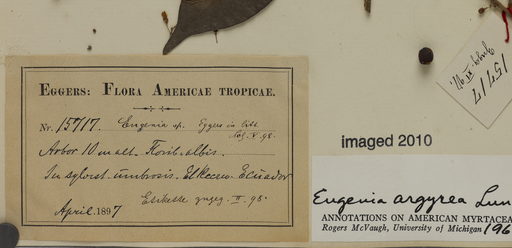 EGGERS: FLORA AMERICAE TROPICAE.
Nr. 15717. Eugenia sp. Eggers in litt.
V. 98.
Arbor 10 m alt. Florib. albis.
In sylvest. umbrosis. El Recreo. Ecuador
Etikette II. 98.
April. 1897
15717
imaged 2010
Eugenia argyrea Lun
ANNOTATIONS ON AMERICAN MYRTACEA
Rogers McVaugh, University of Michigan 196